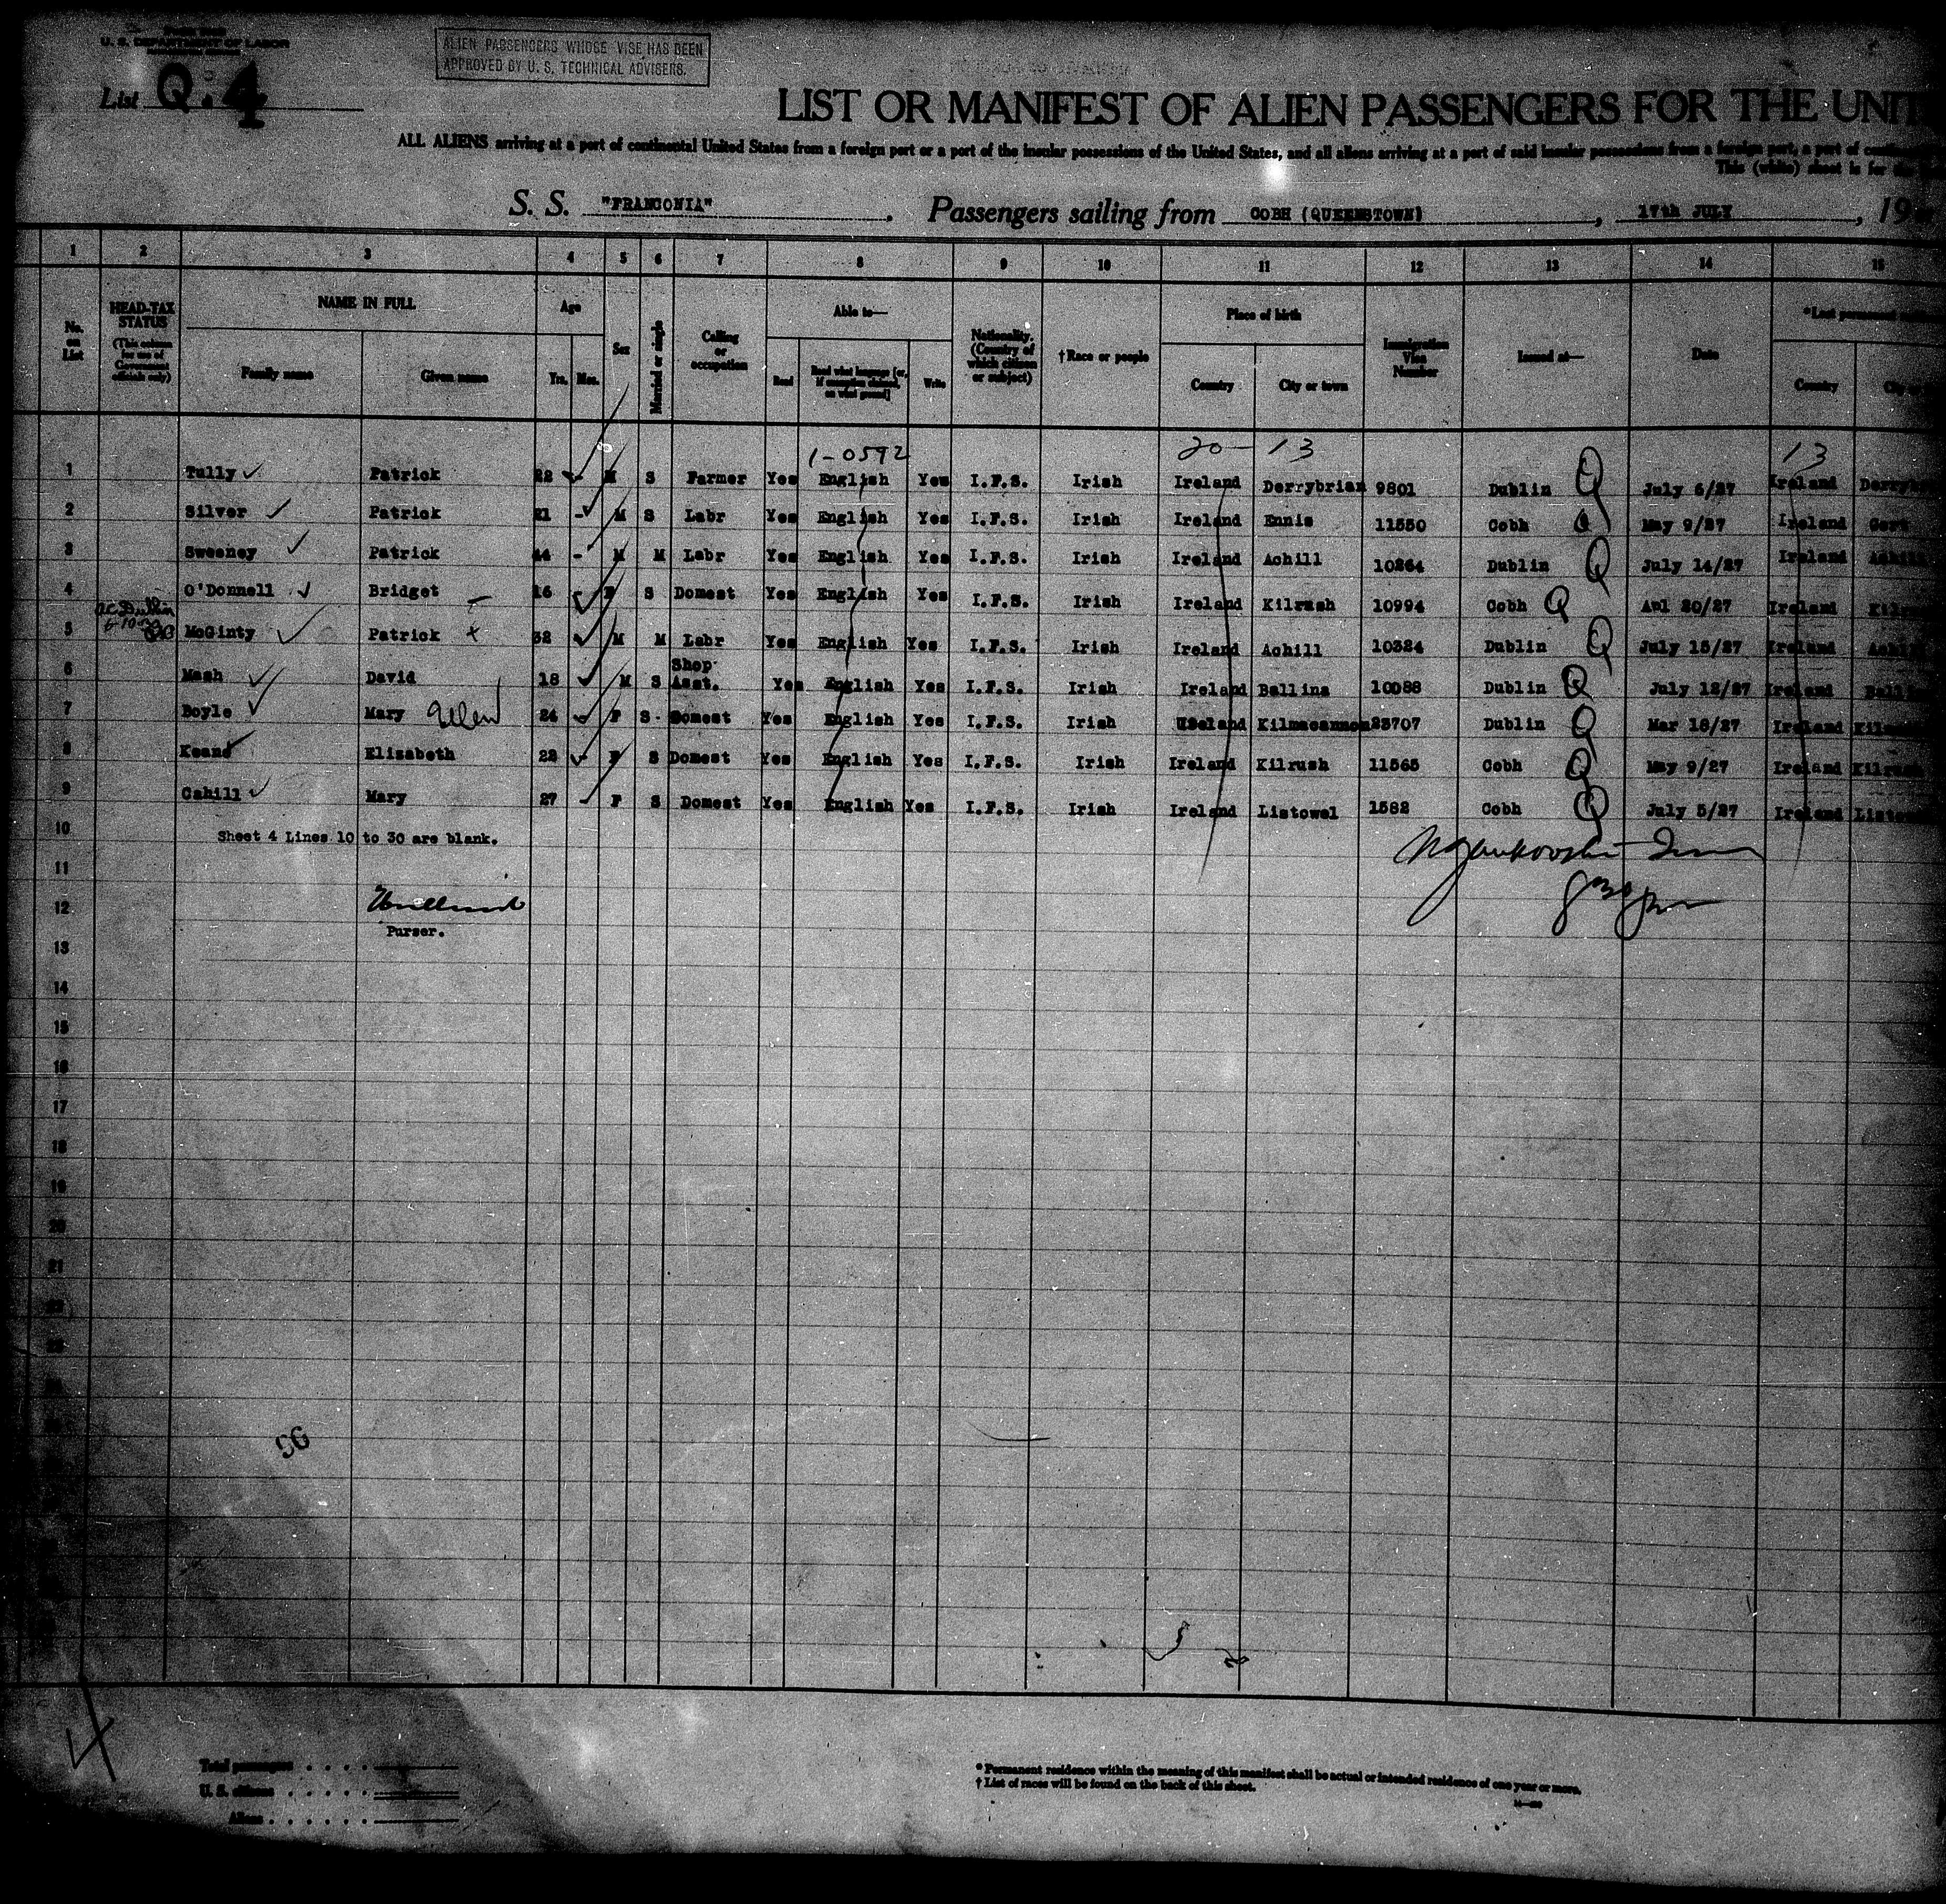 U. S. DEPARTMENT OF LABOR
ALIEN PASSENGERS WHOSE VISE HAS BEEN
APPROVED BY U. S. TECHNICAL ADVISERS.
List Q. 4
LIST OR MANIFEST OF ALIEN PASSENGERS FOR THE UNIT
ALL ALIENS arriving at a port of continental United States from a foreign port or a port of the insular possessions of the United States, and all aliens arriving at a port of said insular possessions from a foreign port, a port of
This (white) sheet is for the
S. S. "FRANCONIA" . Passengers sailing from COBH (QUEENSTOWN) , 17th JULY , 19
1 2 3 4 5 6 7 8 9 10 11 12 13 14 15
No. on List
HEAD-TAX STATUS (This column for use of Government officials only)
NAME IN FULL
Family name Given name
Age
Yrs. Mos.
Sex
Married or single
Calling or occupation
Able to—
Read Read what language [or, if exemption claimed, on what ground] Write
Nationality. (Country of which citizen or subject)
†Race or people
Place of birth
Country City or town
Immigration Visa Number
Issued at—
Date
*Last permanent
Country
1-0592 20-13 13
1 Tully Patrick 22 M S Farmer Yes English Yes I.F.S. Irish Ireland Derrybrian 9801 Dublin Q July 6/27 Ireland
2 Silver Patrick 21 - M S Labr Yes English Yes I.F.S. Irish Ireland Ennis 11550 Cobh Q May 9/27 Ireland Gort
3 Sweeney Patrick 44 - M M Labr Yes English Yes I.F.S. Irish Ireland Achill 10264 Dublin Q July 14/27 Ireland
4 O'Donnell Bridget 16 F S Domest Yes English Yes I.F.S. Irish Ireland Kilrush 10994 Cobh Q Apl 20/27 Ireland
5 McGinty Patrick 32 M M Labr Yes English Yes I.F.S. Irish Ireland Achill 10324 Dublin Q July 15/27 Ireland
6 Nash David 18 M S Shop Asst. Yes English Yes I.F.S. Irish Ireland Ballina 10088 Dublin Q July 12/27 Ireland
7 Boyle Mary Ellen 24 F S Domest Yes English Yes I.F.S. Irish Ireland Kilmacannon 23707 Dublin Q Mar 18/27 Ireland
8 Keane Elizabeth 22 F S Domest Yes English Yes I.F.S. Irish Ireland Kilrush 11565 Cobh Q May 9/27 Ireland
9 Cahill Mary 27 F S Domest Yes English Yes I.F.S. Irish Ireland Listowel 1582 Cobh Q July 5/27 Ireland
10 Sheet 4 Lines 10 to 30 are blank.
11
12
Purser.
13
14
15
16
17
18
19
20
21
22
56
4
Total passengers
U. S. citizens
Aliens
* Permanent residence within the meaning of this manifest shall be actual or intended residence of one year or more.
† List of races will be found on the back of this sheet.